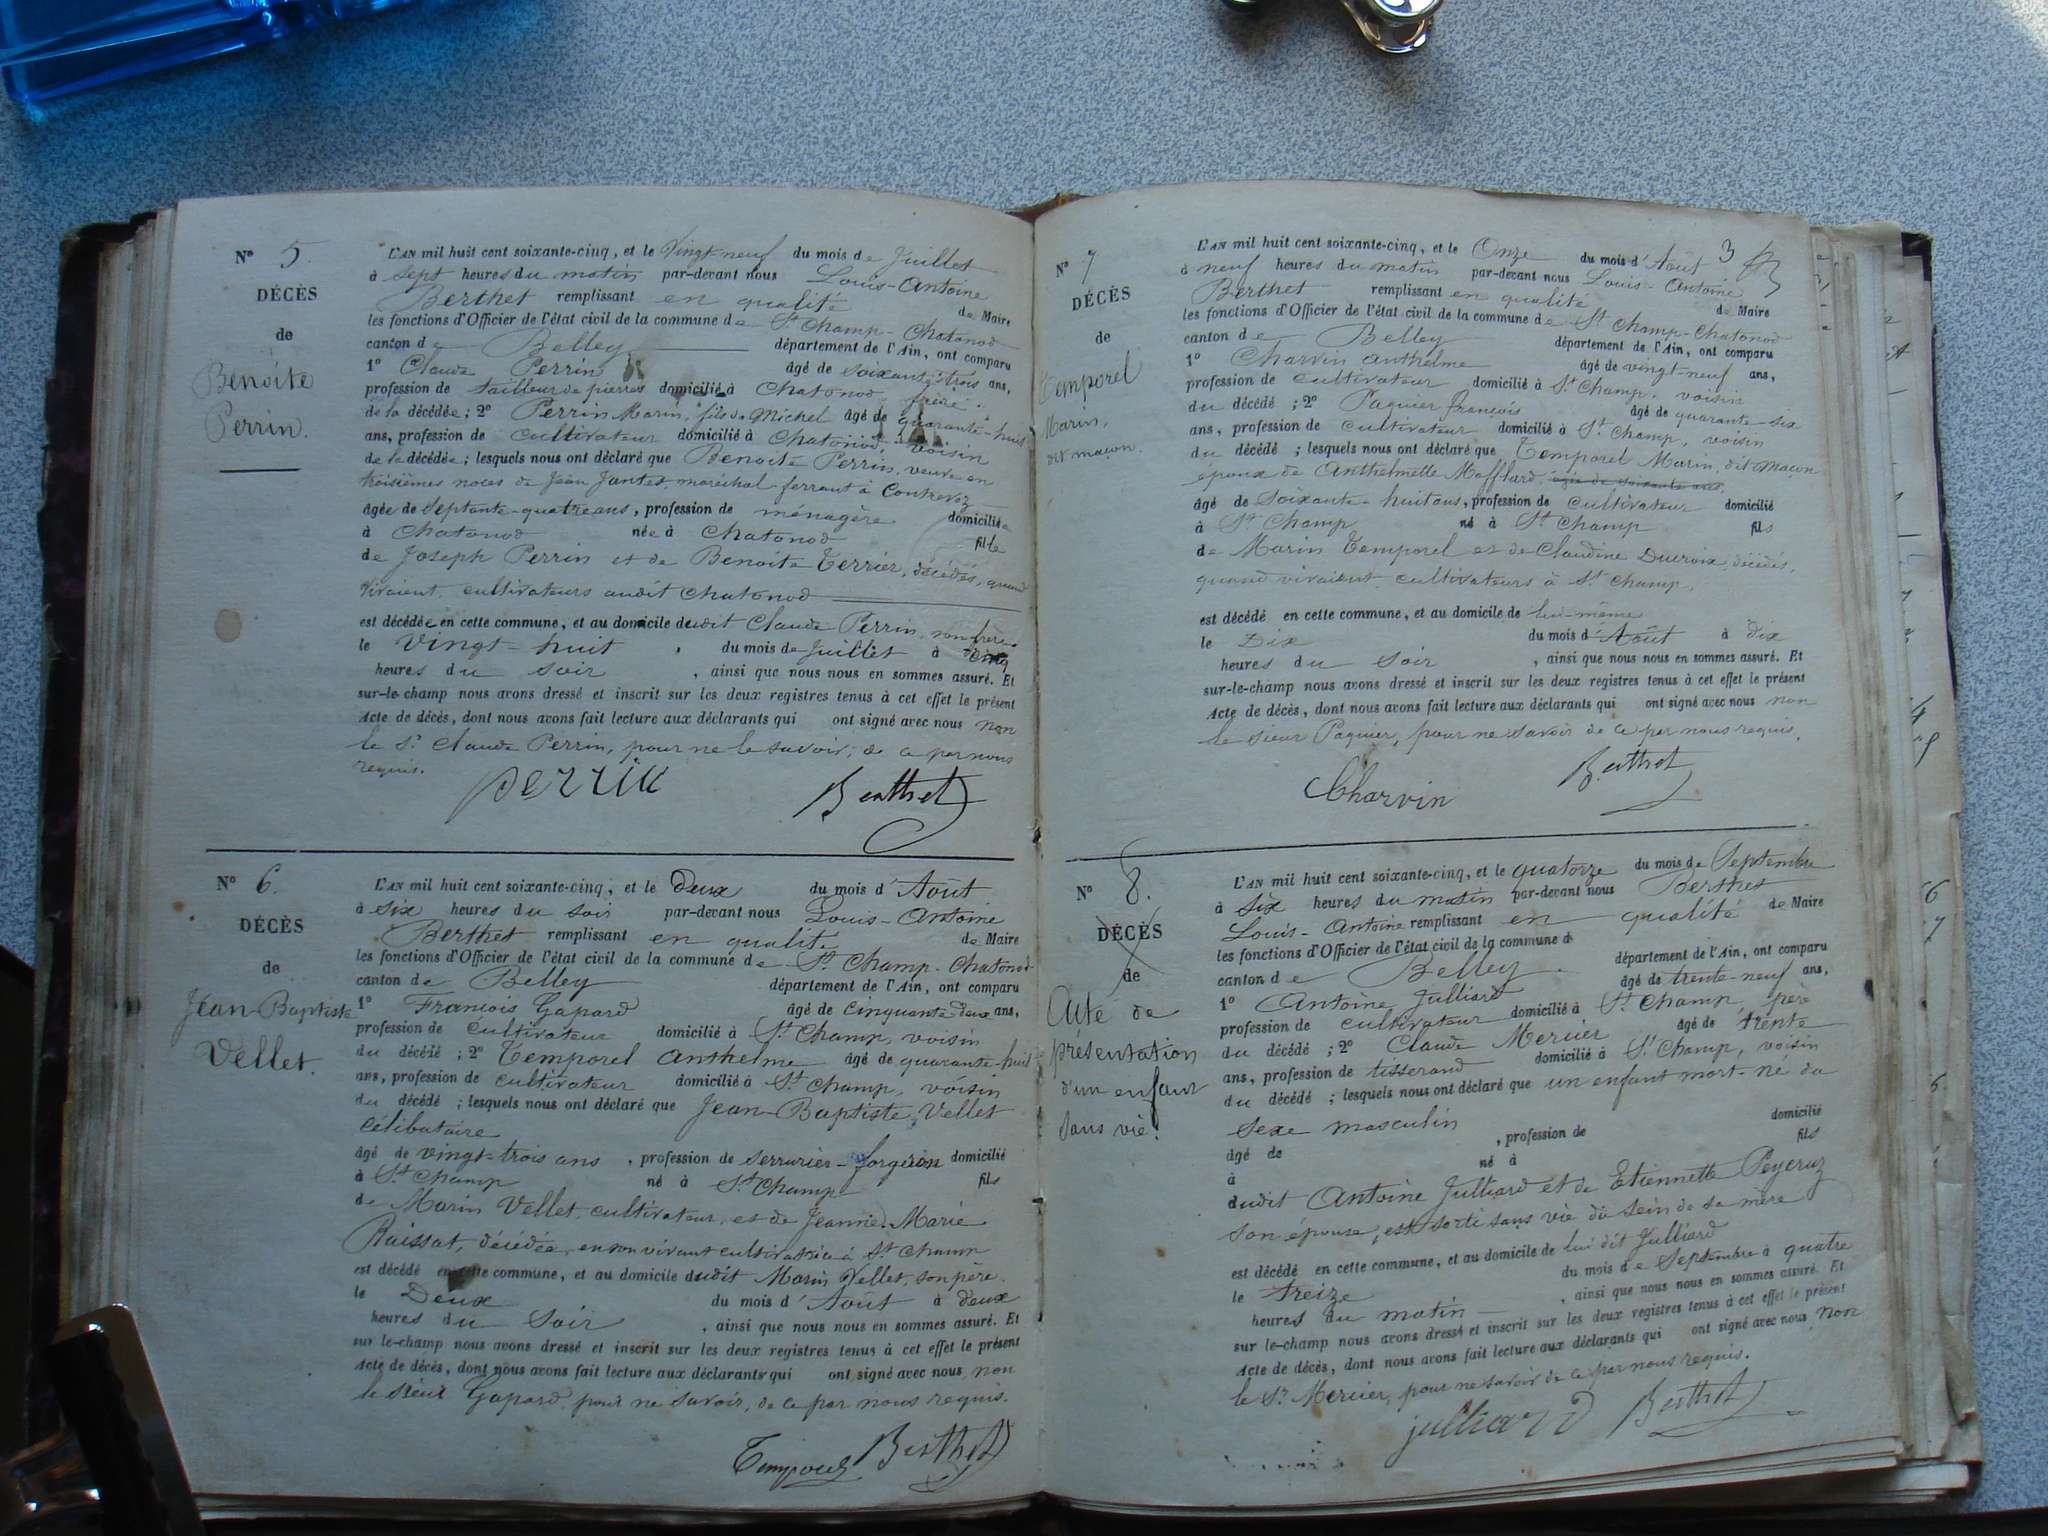 N° 5.
DÉCÈS
de
Benoite
Perrin.
L'AN mil huit cent soixante-cinq, et le Vingt-neuf du mois de Juillet
à sept heures du matin par-devant nous Louis-Antoine
Berthet remplissant en qualité de Maire
les fonctions d'Officier de l'état civil de la commune de St Champ-Chatonod
canton de Belley département de l'Ain, ont comparu
1° Claude Perrin âgé de soixante-trois ans,
profession de tailleur de pierres domicilié à Chatonod, frère
de la décédée; 2° Perrin Marin, fils de Michel âgé de quarante-huit
ans, profession de cultivateur domicilié à Chatonod, voisin
de la décédée; lesquels nous ont déclaré que Benoite Perrin, veuve en
troisièmes noces de Jean Jantet, maréchal-ferrant à Contrevoz
âgée de septante-quatre ans, profession de ménagère domiciliée
à Chatonod née à Chatonod fille
de Joseph Perrin et de Benoite Terrier, décédés, quand
vivaient, cultivateurs audit Chatonod
est décédée en cette commune, et au domicile dudit Claude Perrin, son frère
le Vingt-huit du mois de Juillet à cinq
heures du soir, ainsi que nous nous en sommes assuré. Et
sur-le-champ nous avons dressé et inscrit sur les deux registres tenus à cet effet le présent
Acte de décès, dont nous avons fait lecture aux déclarants qui ont signé avec nous non
le Sr Claude Perrin, pour ne le savoir, de ce par nous
requis.
perrin Berthet
N° 6.
DÉCÈS
de
Jean-Baptiste
Vellet.
L'AN mil huit cent soixante-cinq, et le Deux du mois d'Août
à six heures du soir par-devant nous Louis-Antoine
Berthet remplissant en qualité de Maire
les fonctions d'Officier de l'état civil de la commune de St Champ-Chatonod
canton de Belley département de l'Ain, ont comparu
1° François Gapard âgé de cinquante-deux ans,
profession de cultivateur domicilié à St Champ, voisin
du décédé; 2° Temporel Anthelme âgé de quarante-huit
ans, profession de cultivateur domicilié à St Champ, voisin
du décédé; lesquels nous ont déclaré que Jean-Baptiste Vellet
célibataire
âgé de vingt-trois ans, profession de serrurier-forgeron domicilié
à St Champ né à St Champ fils
de Marin Vellet, cultivateur, et de Jeanne Marie
Raissat, décédée, en son vivant cultivatrice à St Champ
est décédé en cette commune, et au domicile dudit Marin Vellet, son père
le Deux du mois d'Août à deux
heures du Soir, ainsi que nous nous en sommes assuré. Et
sur-le-champ nous avons dressé et inscrit sur les deux registres tenus à cet effet le présent
Acte de décès, dont nous avons fait lecture aux déclarants qui ont signé avec nous non
le sieur Gapard, pour ne savoir, de ce par nous requis.
Temporel Berthet
3
N° 7
DÉCÈS
de
Temporel
Marin,
dit maçon.
L'AN mil huit cent soixante-cinq, et le Onze du mois d'Août
à neuf heures du matin par-devant nous Louis-Antoine
Berthet remplissant en qualité de Maire
les fonctions d'Officier de l'état civil de la commune de St Champ-Chatonod
canton de Belley département de l'Ain, ont comparu
1° Charvin Anthelme âgé de vingt-neuf ans,
profession de cultivateur domicilié à St Champ, voisin
du décédé; 2° Paquier François âgé de quarante-six
ans, profession de cultivateur domicilié à St Champ, voisin
du décédé; lesquels nous ont déclaré que Temporel Marin, dit Maçon
époux de Anthelmette Mafflard, âgée de soixante ans,
âgé de soixante-huit ans, profession de cultivateur domicilié
à St Champ né à St Champ fils
de Marin Temporel et de Claudine Ducroix, décédés,
quand vivaient cultivateurs à St Champ,
est décédé en cette commune, et au domicile de lui-même
le Dix du mois d'Août à dix
heures du Soir, ainsi que nous nous en sommes assuré. Et
sur-le-champ nous avons dressé et inscrit sur les deux registres tenus à cet effet le présent
Acte de décès, dont nous avons fait lecture aux déclarants qui ont signé avec nous non
le sieur Paquier, pour ne savoir de ce par nous requis.
Charvin Berthet
N° 8.
DÉCÈS
de
Acte de
présentation
d'un enfant
sans vie.
L'AN mil huit cent soixante-cinq, et le quatorze du mois de Septembre
à six heures du matin par-devant nous Berthet
Louis-Antoine remplissant en qualité de Maire
les fonctions d'Officier de l'état civil de la commune d
canton de Belley. département de l'Ain, ont comparu
1° Antoine Julliard âgé de trente-neuf ans,
profession de cultivateur domicilié à St Champ, père
du décédé; 2° Claude Mercier âgé de trente
ans, profession de tisserand domicilié à St Champ, voisin
du décédé; lesquels nous ont déclaré que un enfant mort-né du
sexe masculin
âgé de, profession de domicilié
à né à fils
dudit Antoine Julliard et de Etiennette Peycruz
son épouse, est sorti sans vie du sein de sa mère
est décédé en cette commune, et au domicile de lui dit Julliard
le treize du mois de Septembre à quatre
heures du matin, ainsi que nous nous en sommes assuré. Et
sur le-champ nous avons dressé et inscrit sur les deux registres tenus à cet effet le présent
Acte de décès, dont nous avons fait lecture aux déclarants qui ont signé avec nous non
le Sr Mercier, pour ne savoir de ce par nous requis.
julliard Berthet